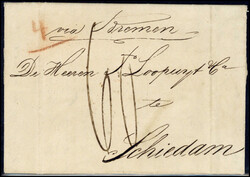 4
via Bremen
De Heeren P. Loopuyt & Co
te
Schiedam